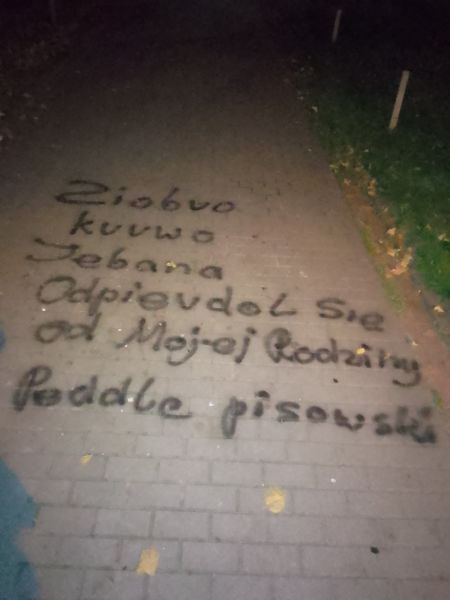 Ziobro
kurwo
Jebana
Odpierdol Się
od Mojej Rodziny
Peddle pisowski